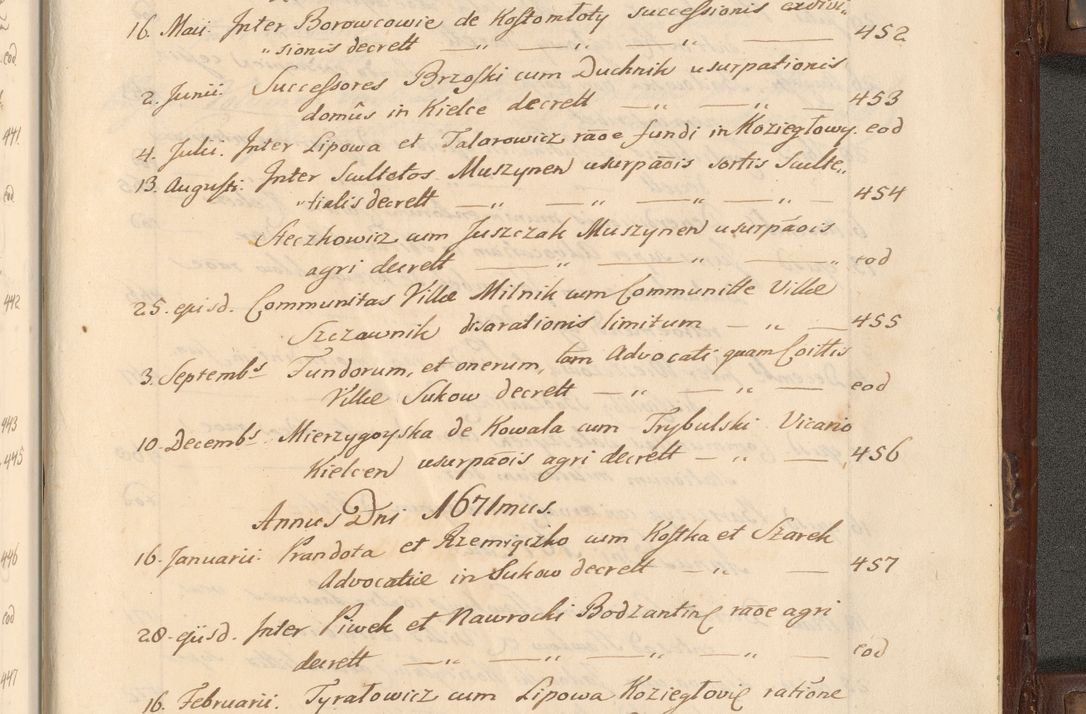 16. Maii. Inter Borowcowie de Kostomłoty successionis exdivi„
„sionis decrett — „ — „ — „ — 452
2. Junii. Successores Brzoski cum Duchnik usurpationis
domûs in Kielce decrett — „ — „ — 453
4. Julii. Inter Lipowa et Talarowicz rãoe fundi in Koziegłowy. eod
13. Augusti. Inter Scultetos Muszynen usurpãois sortis Sculte„
„tialis decrett — „ — „ — „ — „ — 454
Steczkowicz cum Juszczak Muszynen usurpãois
agri decrett — „ — „ — „ eod
25. ejusd. Communitas Villæ Milnik cum Communitte Villæ
Szczawnik disarationis limitum — „ — 455
3. Septembs Fundorum, et onerum, tam Advocati quam Coittis
Villæ Sukow decrett — „ — „ — eod
10. Decembs. Mierzygoyska de Kowala cum Trybulski Vicario
Kielcen usurpãois agri decrett — „ — 456
Annus Dni 1671mus.
16. Januarii. Prandota et Rzemiączko cum Kostka et Szarek
Advocatiæ in Sukow decrett — „ — 457
28. ejusd. Inter Piwek et Nawrocki Bodzantin rãoe agri
decrett — „ — „ — „ — „ — eod
16. Februarii. Tyratowicz cum Lipowa Koziegłovie ratiõne
441.
eod
442
443
445
446
eod
447